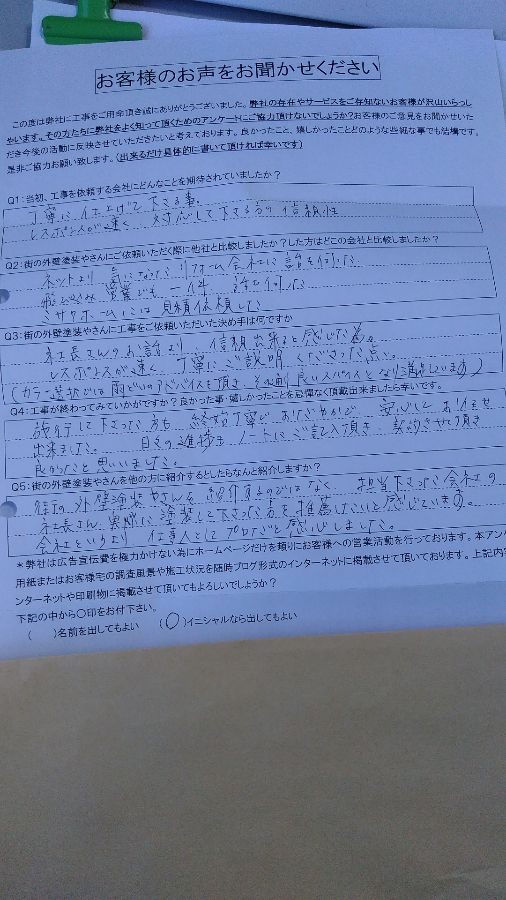 お客様のお声をお聞かせください
この度は弊社に工事をご用命頂き誠にありがとうございました。弊社の存在やサービスをご存知ないお客様が沢山いらっし
ゃいます。その方たちに弊社をよく知って頂くためのアンケートにご協力頂けないでしょうか?お客様のご意見をお聞かせいた
だき今後の活動に反映させていただきたいと考えております。良かったこと、嬉しかったことどのような些細な事でも結構です。
是非ご協力お願い致します。(出来るだけ具体的に書いて頂ければ幸いです)
Q1:当初、工事を依頼する会社にどんなことを期待されていましたか?
丁寧に仕上げて下さる事。
レスポンスが速く、対応して下さる方の信頼性
Q2:街の外壁塗装やさんにご依頼いただく際に他社と比較しましたか?した方はどこの会社と比較しましたか?
ネットより気になったリフォーム会社に話を伺った
飛び込み営業にも一件話を伺った
ミサワホームには見積依頼した
Q3:街の外壁塗装やさんに工事をご依頼いただいた決め手は何ですか
社長さんのお話より、信頼出来ると感じた為。
レスポンスが速く、丁寧にご説明くださった点。
(カラー選択では雨どいのアドバイスを頂き、その通り良いスパイスとなり満足しています)
Q4:工事が終わってみていかがですか?良かった事・嬉しかったことを忌憚なく頂戴出来ましたら幸いです。
施行して下さった方も終始丁寧でおだやかで、安心してお任せ
出来ました。日々の進捗もノートにご記入頂き、契約させて頂き
良かったと思いました。
Q5:街の外壁塗装やさんを他の方に紹介するとしたらなんと紹介しますか?
街の外壁塗装やさんを紹介するのではなく、担当下さった会社の
社長さん、実際に塗装して下さった方を推薦したいと感じています。
会社というより、仕事人としてプロだと感心しました。
*弊社は広告宣伝費を極力かけない為にホームページだけを頼りにお客様への営業活動を行っております。本アン
用紙またはお客様宅の調査風景や施工状況を随時ブログ形式のインターネットに掲載させて頂いております。上記内容
ンターネットや印刷物に掲載させて頂いてもよろしいでしょうか?
下記の中から〇印をお付下さい。
( )名前を出してもよい (〇)イニシャルなら出してもよい